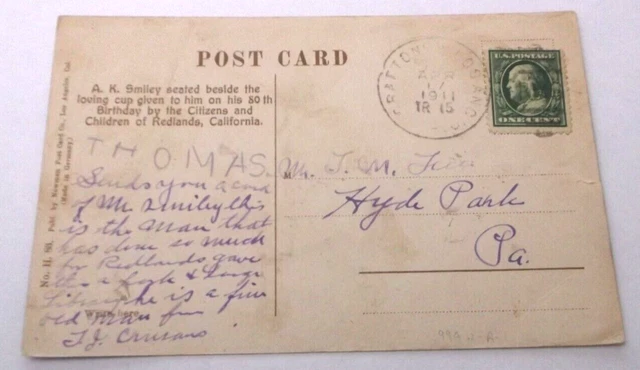 POST CARD
A. K. Smiley seated beside the
loving cup given to him on his 80th
Birthday by the Citizens and
Children of Redlands, California.
No. H. 80. Publ. by Newman Post Card Co., Los Angeles, Cal.
(Made in Germany)
APR
1911
U.S. POSTAGE
ONE CENT
THOMAS.
Sends you a card
of Mr Smiley this
is the man that
has done so much
for Redlands gave
this a park & large
Library he is a fine
old man
T.J.
Write here
M
Mr. T. M.
Hyde Park
Pa.